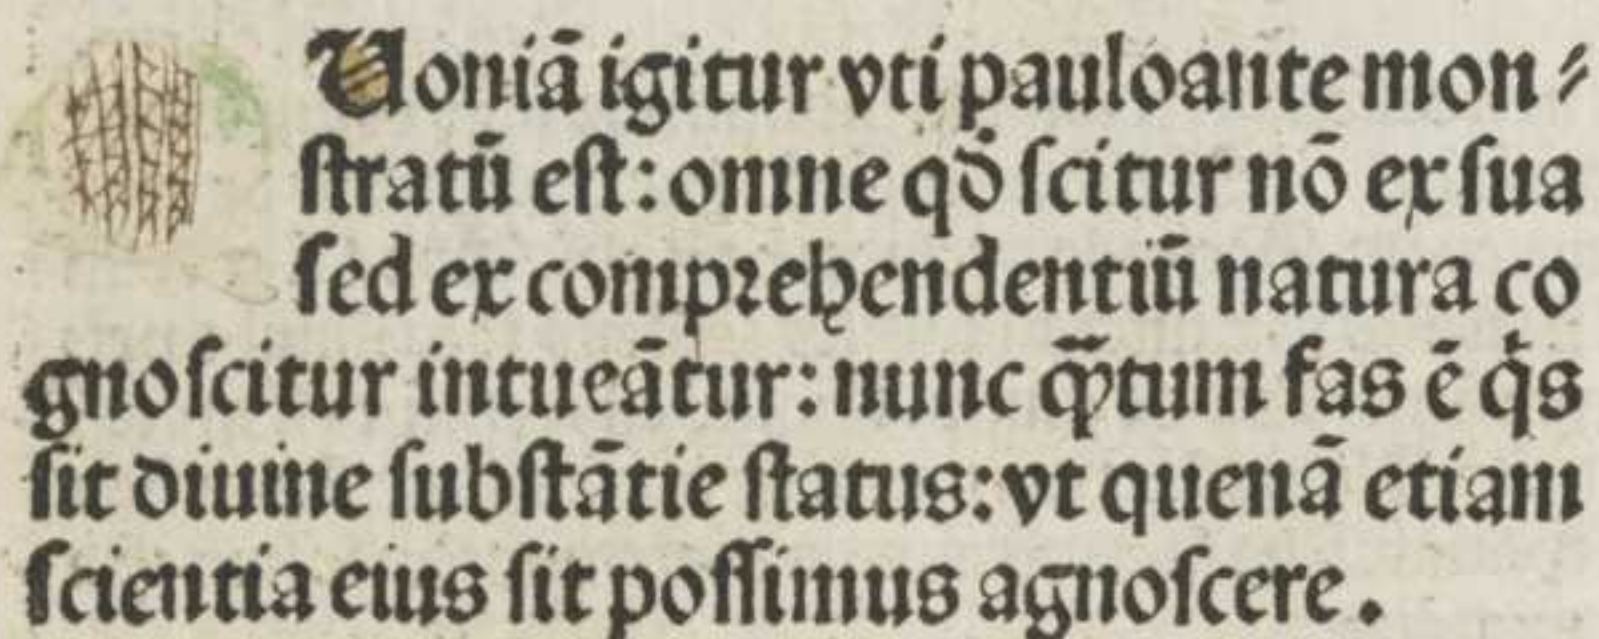 Uoniā igitur vti pauloante mon⸗
ſtratū eſt: omne qđ ſcitur nō ex ſua
ſed ex comprehendentiū natura co
gnoſcitur intueātur: nunc qᷓꝫtum fas ē qͥs
ſit diuine ſubſtātie ſtatus: vt quenā etiam
ſcientia eius ſit poſſimus agnoſcere.